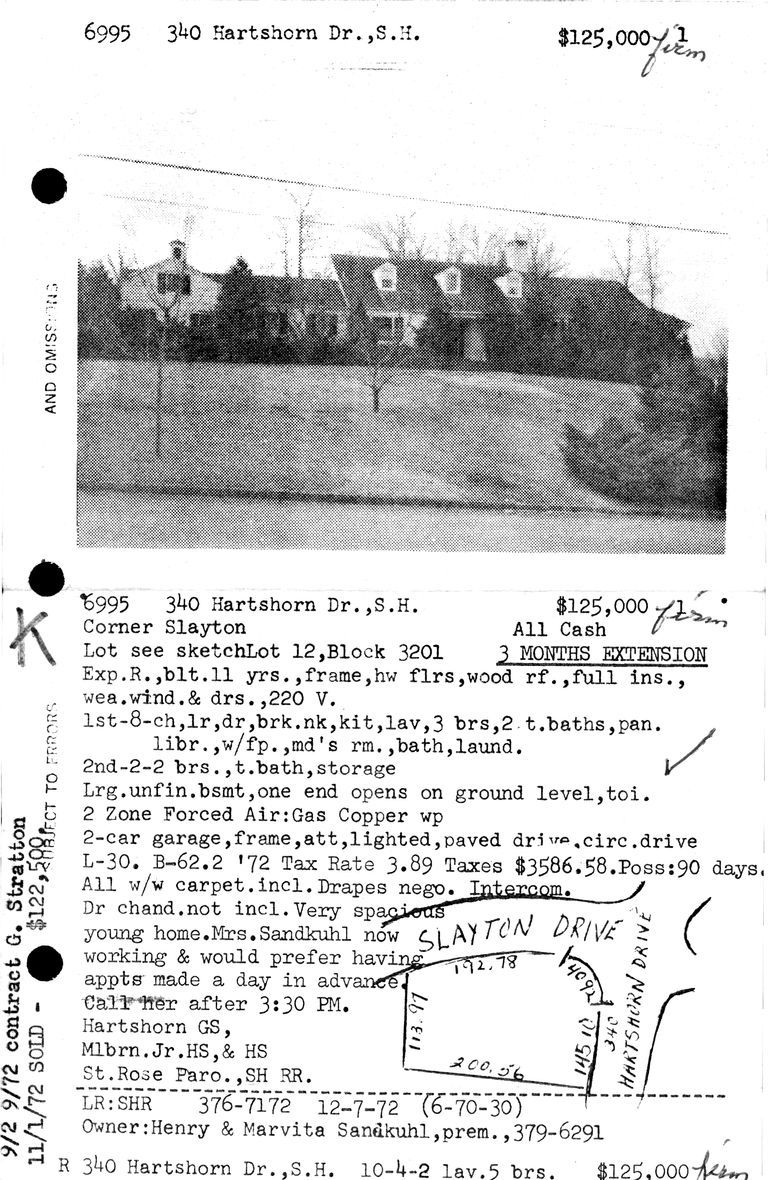 6995 340 Hartshorn Dr.,S.H. $125,000 firm
AND OMISSIONS
6995 340 Hartshorn Dr.,S.H. $125,000 firm
Corner Slayton All Cash
Lot see sketchLot 12,Block 3201 3 MONTHS EXTENSION
Exp.R.,blt.11 yrs.,frame,hw flrs,wood rf.,full ins.,
wea.wind.& drs.,220 V.
1st-8-ch,lr,dr,brk.nk,kit,lav,3 brs,2 t.baths,pan.
libr.,w/fp.,md's rm.,bath,laund.
2nd-2-2 brs.,t.bath,storage
Lrg.unfin.bsmt,one end opens on ground level,toi.
2 Zone Forced Air:Gas Copper wp
2-car garage,frame,att,lighted,paved drive,circ.drive
L-30. B-62.2 '72 Tax Rate 3.89 Taxes $3586.58.Poss:90 days.
All w/w carpet.incl.Drapes nego. Intercom.
Dr chand.not incl.Very spacious
young home.Mrs.Sandkuhl now
working & would prefer having
appts made a day in advance.
Call her after 3:30 PM.
Hartshorn GS,
Mlbrn.Jr.HS,& HS
St.Rose Paro.,SH RR.
SLAYTON DRIVE
192.78
40.92
113.97
145.10
340
HARTSHORN DRIVE
200.56
LR:SHR 376-7172 12-7-72 (6-70-30)
Owner:Henry & Marvita Sandkuhl,prem.,379-6291
R 340 Hartshorn Dr.,S.H. 10-4-2 lav.5 brs. $125,000 firm
K
SUBJECT TO ERRORS
9/2 9/72 contract G. Stratton
11/1/72 SOLD - $122,500.